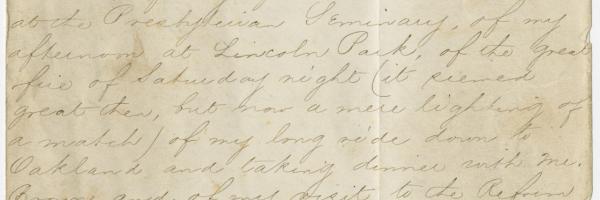 at the Presbyterian Seminary, of my
afternoon at Lincoln Park, of the great
fire of Saturday night (it seemed
great then, but now a mere lighting of
a match) of my long ride down to
Oakland and taking dinner with Mr.
Brown and of my visit to the Reform